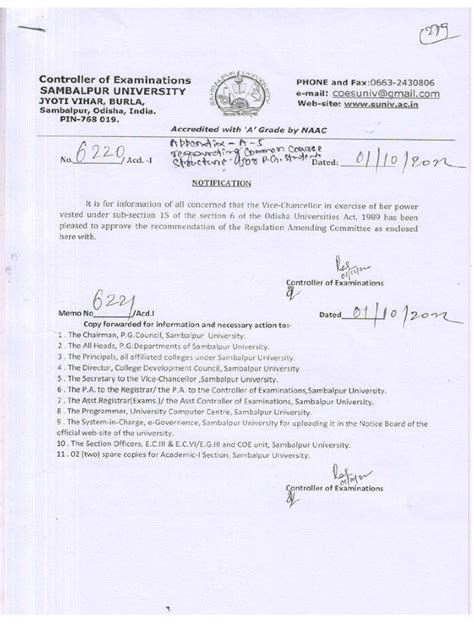 279
Controller of Examinations
SAMBALPUR UNIVERSITY
JYOTI VIHAR, BURLA,
Sambalpur, Odisha, India.
PIN-768 019.
PHONE and Fax:0663-2430806
e-mail: coesuniv@gmail.com
Web-site: www.suniv.ac.in
Accredited with 'A' Grade by NAAC
Appendix - A-5
regarding Common Course
structure for P.G. students
No. 6220 /Acd.-I Dated: 01/10/2022
NOTIFICATION
It is for information of all concerned that the Vice-Chancellor in exercise of her power
vested under sub-section 15 of the section 6 of the Odisha Universities Act. 1989 has been
pleased to approve the recommendation of the Regulation Amending Committee as enclosed
here with.
Controller of Examinations
Memo No 6221 /Acd.I Dated 01/10/2022
Copy forwarded for information and necessary action to:-
1 . The Chairman, P.G.Council, Sambalpur University.
2 . The All Heads, P.G.Departments of Sambalpur University.
3 . The Principals, all affiliated colleges under Sambalpur University.
4 . The Director, College Development Council, Sambalpur University.
5 . The Secretary to the Vice-Chancellor ,Sambalpur University.
6 . The P.A. to the Registrar/ the P.A. to the Controller of Examinations,Sambalpur University.
7 . The Asst.Registrar(Exams.)/ the Asst Controller of Examinations, Sambalpur University.
8 . The Programmer, University Computer Centre, Sambalpur University.
9 . The System-in-Charge, e-Governence, Sambalpur University for uploading it in the Notice Board of the
official web-site of the university.
10 . The Section Officers, E.C.III & E.C.VI/E.G.III and COE unit, Sambalpur University.
11 . 02 (two) spare copies for Academic-I Section, Sambalpur University.
Controller of Examinations